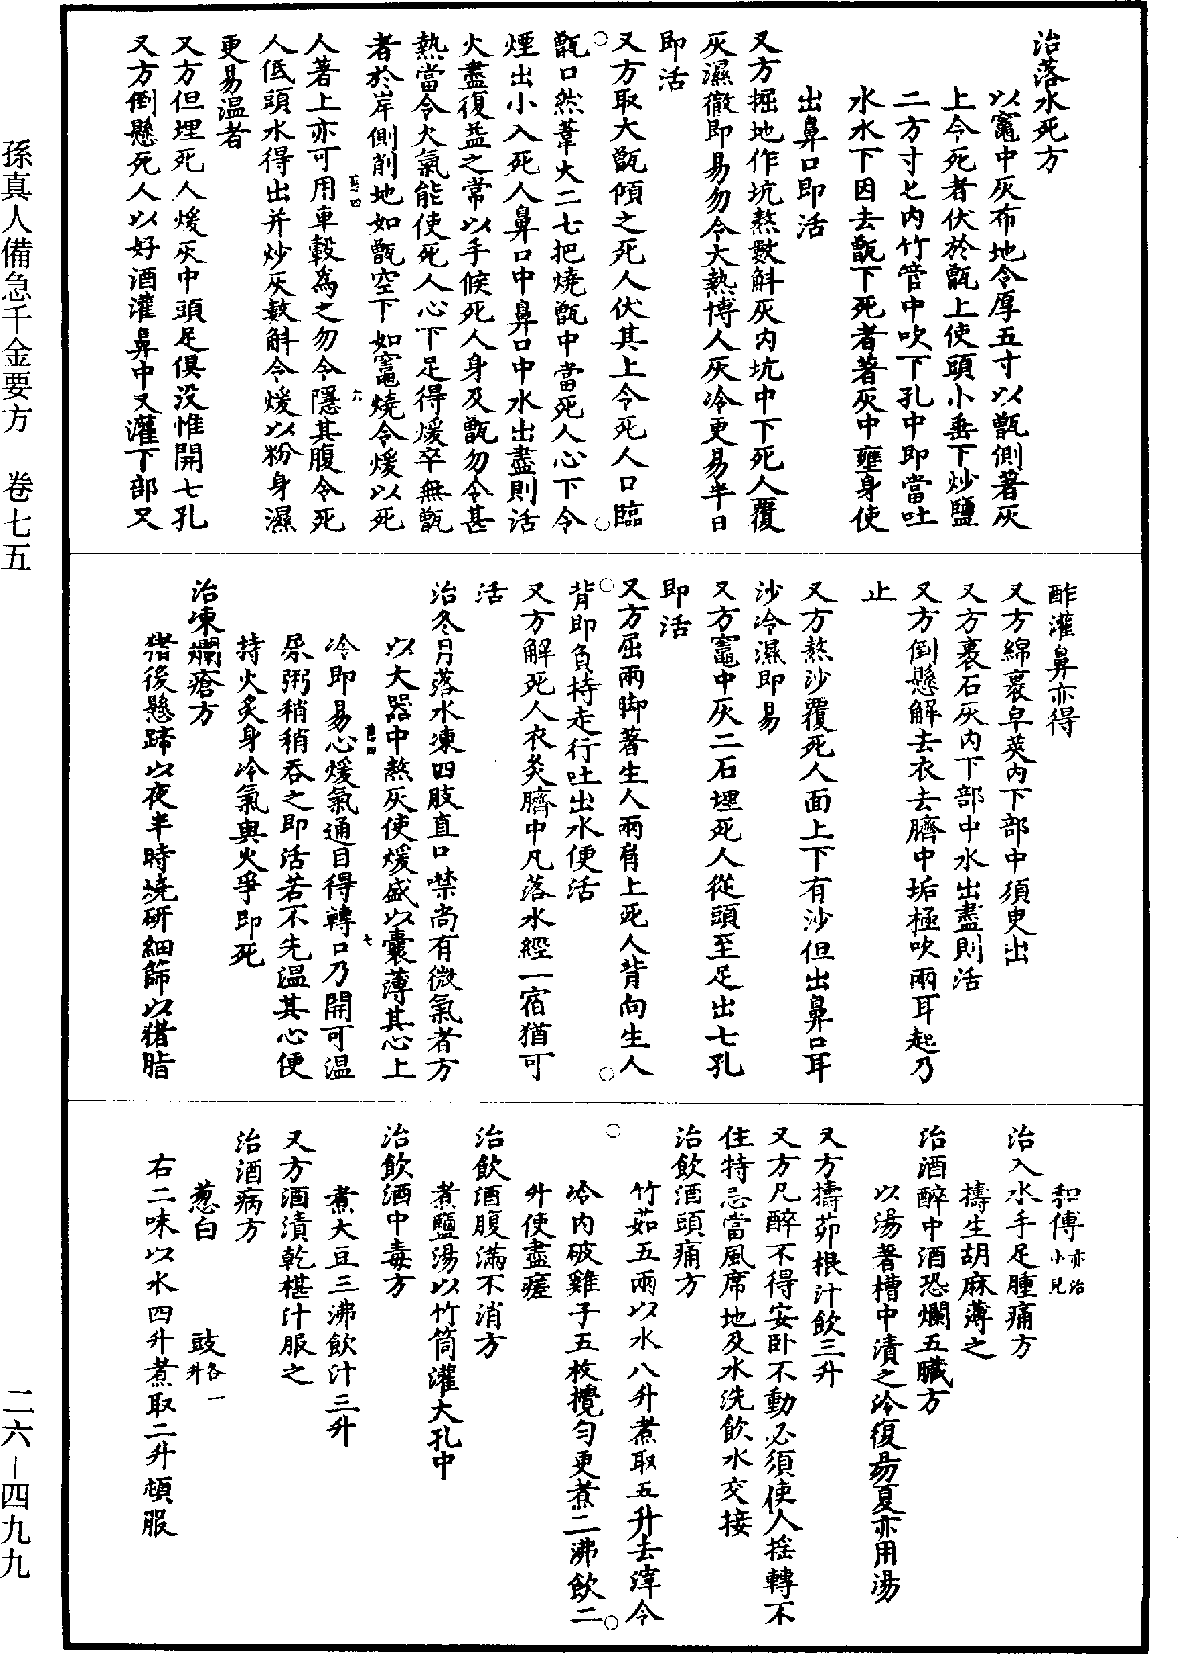 治落水死方
以竈中灰布地令厚五寸以甑側著灰
上令死者伏於甑上使頭小垂下炒鹽
二方寸匕内竹管中吹下孔中即當吐
水水下因去甑下死者著灰中壅身使
出鼻口即活
又方掘地作坑熬數斛灰内坑中下死人覆
灰濕徹即易勿令大熱愽人灰冷更易半日
即活
又方取大甑傾之死人伏其上令死人口臨
甑口然葦火二七把燒甑中當死人心下令
煙出小入死人鼻口中鼻口中水出盡則活
火盡復益之常以手候死人身及甑勿令甚
熱當令火氣能使死人心下足得煖卒無甑
者於岸側削地如甑空下如竈燒令煖以死
人著上亦可用車轂為之勿令隱其腹令死
人低頭水得出并炒灰數斛令煖以粉身濕
更易温者
又方但埋死人煖灰中頭足俱没惟開七孔
又方倒懸死人以好酒灌鼻中又灌下部又
酢灌鼻亦得
又方綿裹皁莢内下部中須臾出
又方裹石灰内下部中水出盡則活
又方倒懸解去衣去臍中垢極吹兩耳起乃
止
又方熬沙覆死人面上下有沙但出鼻口耳
沙冷濕即易
又方竈中灰二石埋死人從頭至足出七孔
即活
又方屈兩脚著生人兩肩上死人背向生人
背即負持走行吐出水便活
又方解死人衣灸臍中凡落水經一宿猶可
活
治冬月落水凍四肢直口噤尚有微氣者方
以大器中熬灰使煖盛以囊薄其心上
冷即易心煖氣通目得轉口乃開可温
尿粥稍稍吞之即活若不先温其心便
持火炙身冷氣與火爭即死
治凍爛瘡方
猪後懸蹄以夜半時燒研細篩以猪脂
和傅亦治小兒
治入水手足腫痛方
擣生胡麻薄之
治酒醉中酒恐爛五臟方
以湯著槽中漬之冷復易夏亦用湯
又方擣茆根汁飲三升
又方凡醉不得安卧不動必須使人揺轉不
住特忌當風席地及水洗飲水交接
治飲酒頭痛方
竹茹五兩以水八升煮取五升去滓令
冷内破雞子五枚攪匀更煮二沸飲二
升使盡瘥
治飲酒腹滿不消方
煮鹽湯以竹筒灌大孔中
治飲酒中毒方
煮大豆三沸飲汁三升
又方酒漬乾椹汁服之
治酒病方
葱白 豉各一升
右二味以水四升煮取二升頓服
孫真人備急千金要方 卷七五
二六—四九九